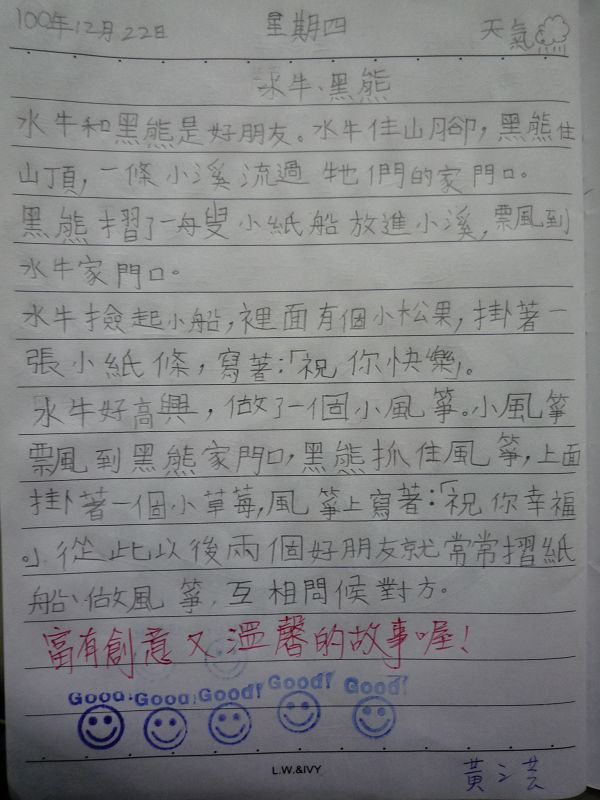 100年12月22日 星期四 天氣
水牛、黑熊
水牛和黑熊是好朋友。水牛住山腳，黑熊住
山頂，一條小溪流過牠們的家門口。
黑熊摺了一艘小紙船放進小溪，飄到
水牛家門口。
水牛撿起小船，裡面有個小松果，掛著一
張小紙條，寫著：「祝你快樂」。
水牛好高興，做了一個小風箏。小風箏
飄到黑熊家門口，黑熊抓住風箏，上面
掛著一個小草莓，風箏上寫著：「祝你幸福
。」從此以後兩個好朋友就常常摺紙
船、做風箏，互相問候對方。
富有創意又溫馨的故事喔！
Good! Good! Good! Good! Good!
L.W.&IVY
黃芸